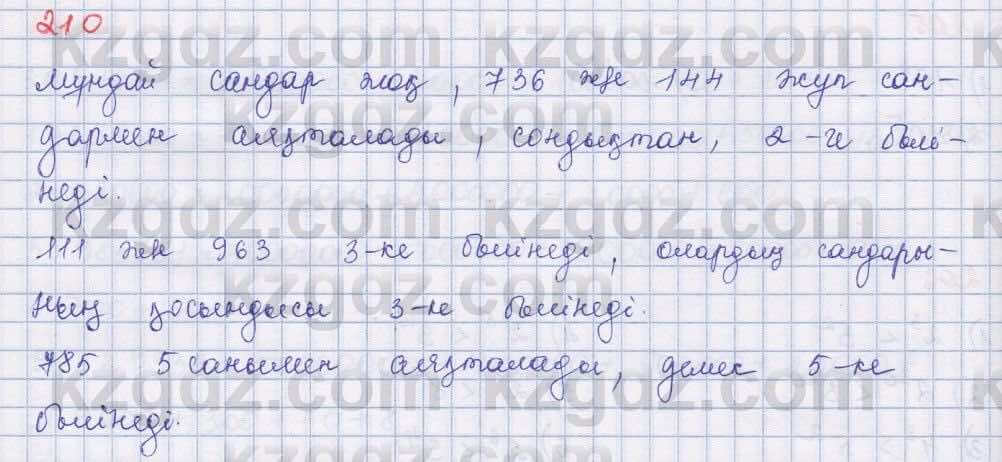 210
мұндай сандар жоқ, 736 же 144 жұп сан-
дармен аяқталады, сондықтан, 2-ге бөлі-
неді.
111 жән 963 3-ке бөлінеді, олардың сандары-
ның қосындысы 3-ке бөлінеді.
785 5 санымен аяқталады, демек 5-ке
бөлінеді.
kzgdz.com kzgdz.com
kzgdz.com kzgdz.com
kzgdz.com kzgdz.com
kzgdz.com kzgdz.com